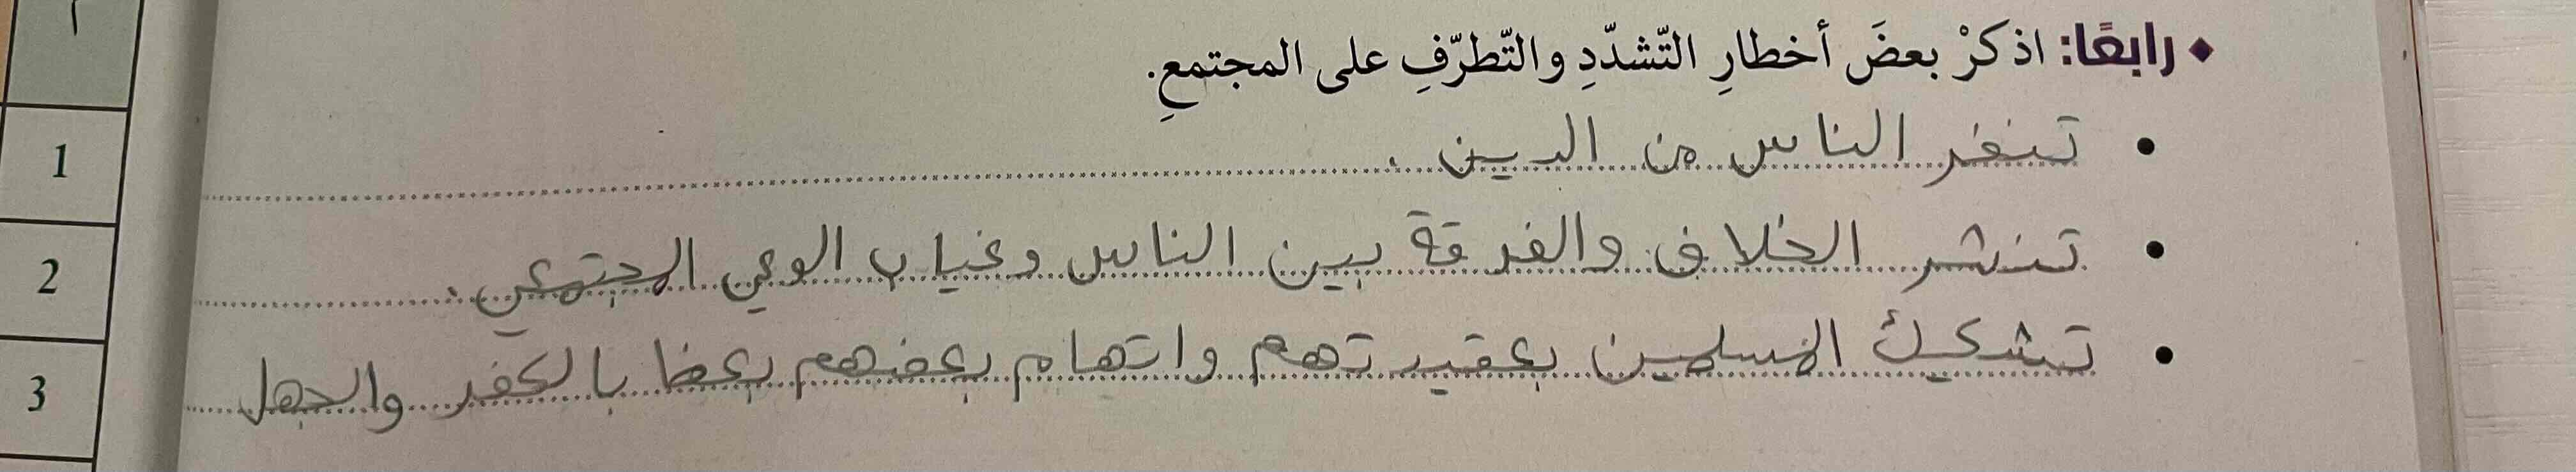 رابعًا: اذكرْ بعضَ أخطارِ التّشدّدِ والتّطرّفِ على المجتمعِ.
• تنفر الناس من الدين .
• تنشر الخلاف والفرقة بين الناس وغياب الوعي المجتمعي .
• تشكيك المسلمين بعقيدتهم واتهام بعضهم بعظا بالكفر والجهل
1
2
3